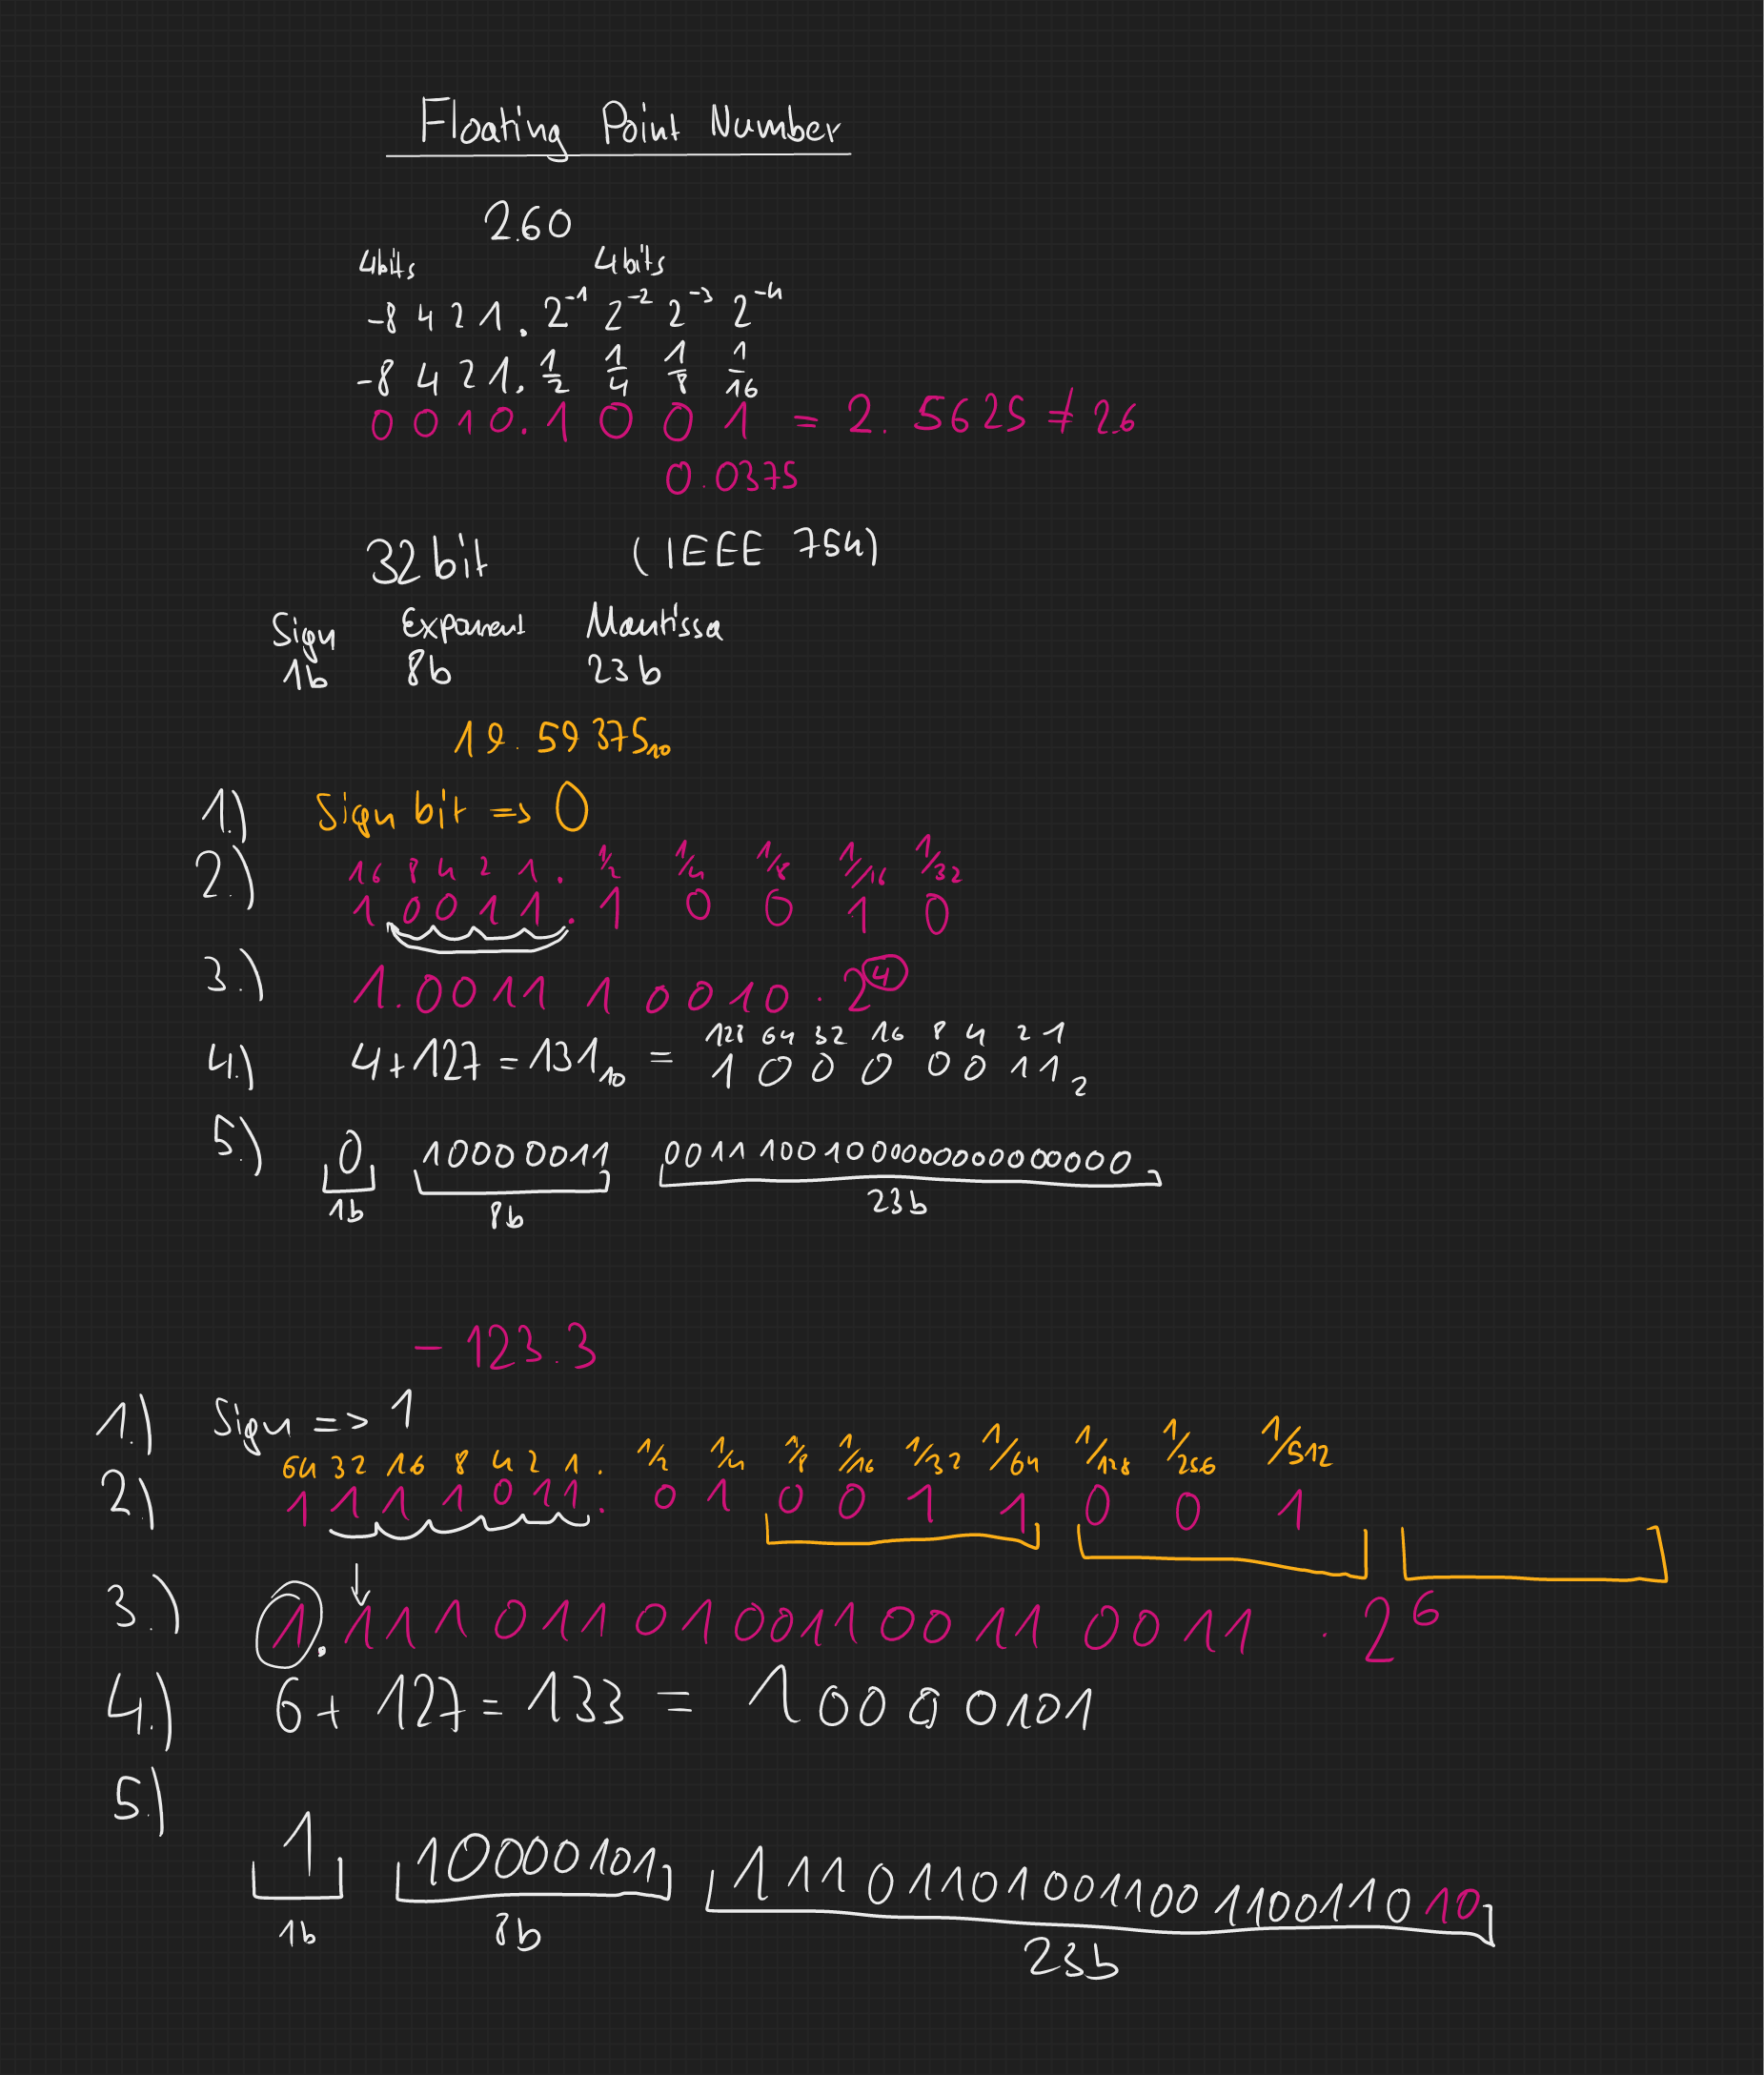 Floating Point Number
2.60
4bits 4bits
-8 4 2 1 . 2⁻¹ 2⁻² 2⁻³ 2⁻⁴
-8 4 2 1 . 1/2 1/4 1/8 1/16
0 0 1 0 . 1 0 0 1 = 2. 5625 ≠ 2.6
0.0375
32 bit (IEEE 754)
Sign Exponent Mantissa
1b 8b 23b
19.59375₁₀
1.) Sign bit => 0
16 8 4 2 1 . 1/2 1/4 1/8 1/16 1/32
2.) 1 0 0 1 1 . 1 0 0 1 0
3.) 1.0011 1 0010 · 2⁴
128 64 32 16 8 4 2 1
4.) 4+127 = 131₁₀ = 1 0 0 0 0 0 1 1₂
5.) 0 10000011 00111001000000000000000
1b 8b 23b
- 123.3
1.) Sign => 1
64 32 16 8 4 2 1 . 1/2 1/4 1/8 1/16 1/32 1/64 1/128 1/256 1/512
2.) 1 1 1 1 0 1 1 . 0 1 0 0 1 1 0 0 1
3.) 1.111 011 01 0011 0011 0011 · 2⁶
4.) 6 + 127 = 133 = 10000101
5.)
1 10000101 11101101001100110011010
1b 8b 23b